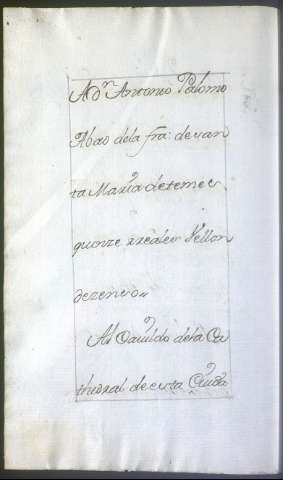 A Dn. Antonio Palomo
Abad dela fra: de san
ta Maria de temes
quinze rreales Vellon
de zenso
Al Cavildo dela Ca
thedral de esta Ciuda